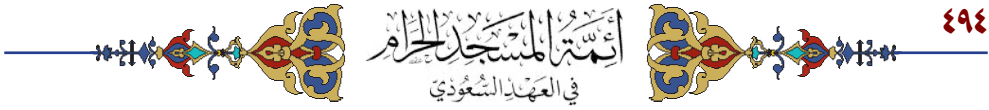 ٤٩٤
أئمة المسجد الحرام
في العهد السعودي